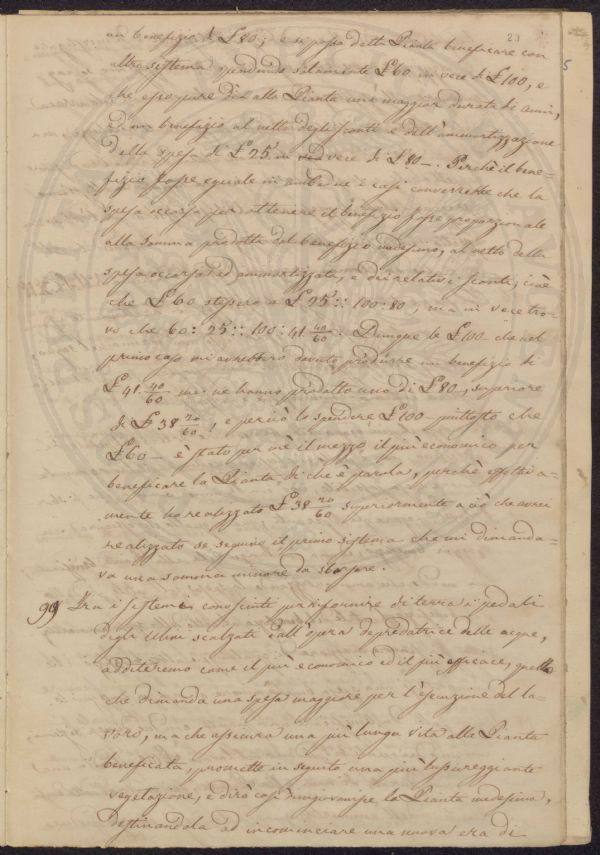 20
un benefizio di £ 80; e si possa detta Pianta beneficare con
altro sistema spendendo solamente £ 60 in vece di £ 100, e
che esso pure dia alla Pianta una maggior durata di anni,
ed un benefizio al netto degli sconti e dell'ammortizzazione
della spesa di £ 25 in vece di £ 80 –. Perchè il bene=
fizio fosse eguale in ambedue i casi converrebbe che la
spesa occorsa per ottenere il benefizio fosse proporzionale
alla somma prodotta dal benefizio medesimo, al netto della
spesa occorsa ed ammortizzata, e dei relativi sconti, cioè
che £ 60 stessero a £ 25 :: 100 : 80, ma in vece tro=
vo che 60 : 25 :: 100 : 41 40/60. Dunque le £ 100 che nel
primo caso mi avrebbero dovuto produrre un benefizio di
£ 41 40/60 me ne hanno prodotto uno di £ 80, superiore
di £ 38 20/60, e perciò lo spendere £ 100 piuttosto che
£ 60 – è stato per me il mezzo il più economico per
beneficare la Pianta di che è parola, perchè effettiva=
mente ho realizzato £ 38 20/60 superiormente a ciò che avrei
realizzato se seguivo il primo sistema che mi dimanda=
va una somma minore da
99 Tra i sistemi conosciuti per rifornire di terra i pedali
degli Ulivi scalzati dall'opera depredatrice delle acque,
additeremo come il più economico ed il più efficace, quello
che dimanda una spesa maggiore per l'esecuzione del la=
voro, ma che assicura una più lunga vita alla Pianta
beneficata, promette in seguito una più lussureggiante
vegetazione, e dirò così ringiovanisce la Pianta medesima,
destinandola ad incominciare una nuova era di
5